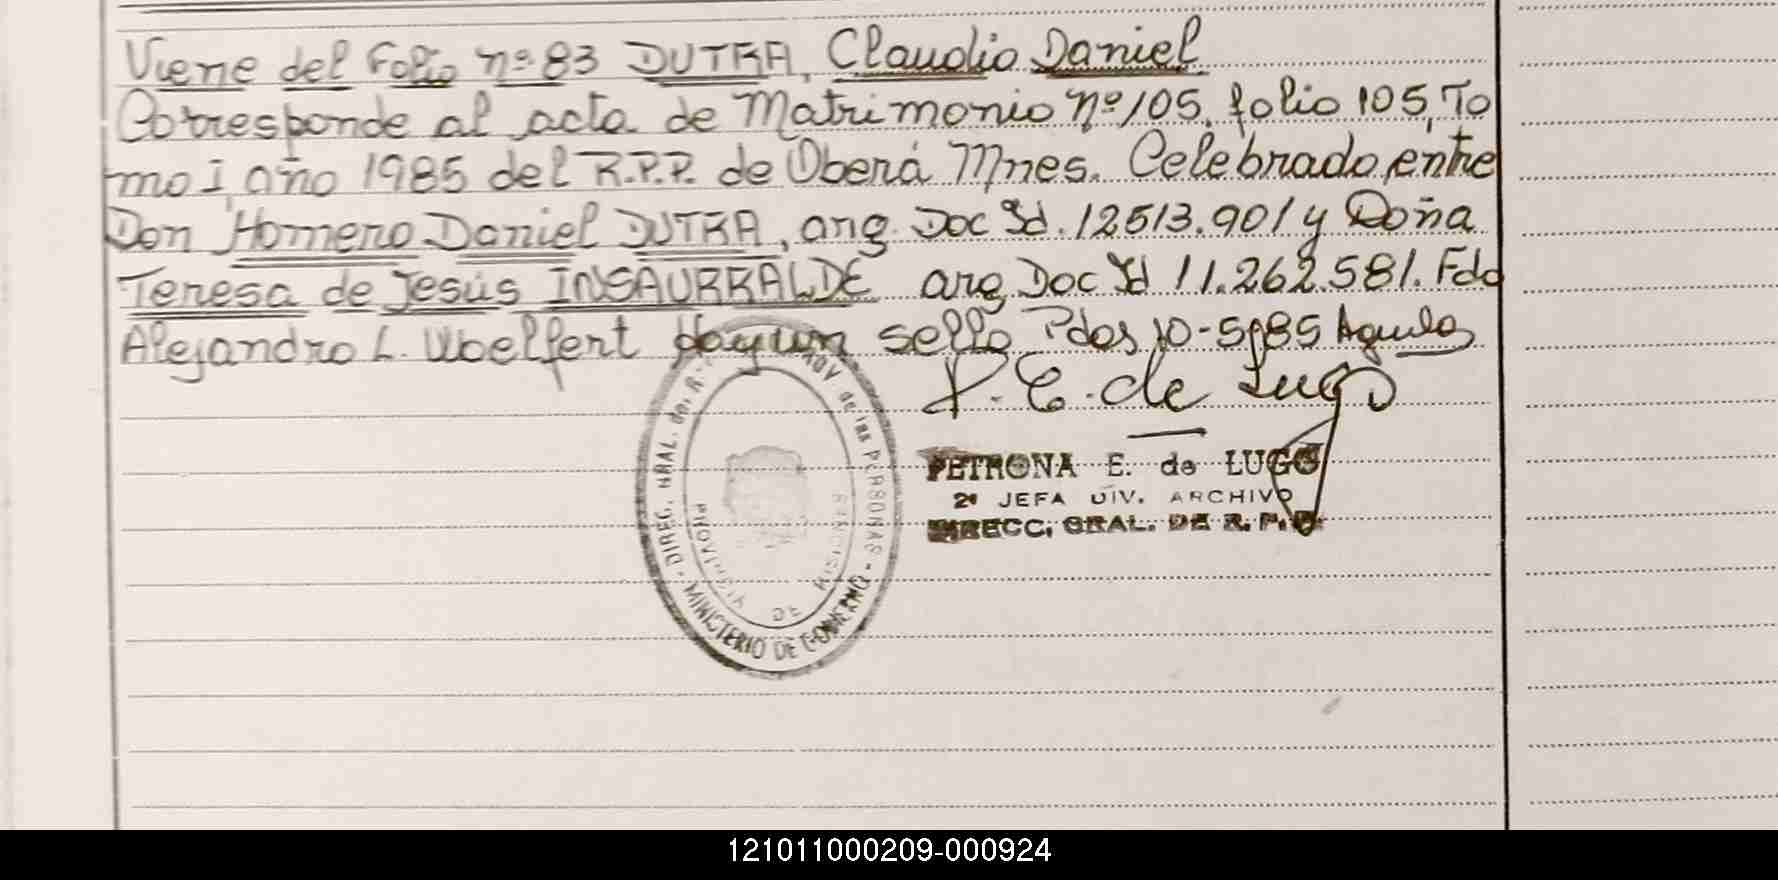 Viene del Folio nº 83 DUTRA, Claudio Daniel
Corresponde al acta de Matrimonio nº 105, folio 105, To
mo I, año 1985 del R.P.P. de Oberá Mnes. Celebrado entre
Don Homero Daniel DUTRA, arg. Doc Id. 12513.901 y Doña
Teresa de Jesús INSAURRALDE arg Doc Id 11.262.581. Fdo
Alejandro L. Woelfert Hay un sello Pdos 10-5-85
P. E. de Lugo
PETRONA E. de LUGO
2ª JEFA DIV. ARCHIVO
DIRECC. GRAL. DE R. P. P.
DIREC. GRAL. del R. PROV de las PERSONAS - MINISTERIO DE GOBIERNO -
PROVINCIA DE MISIONES
121011000209-000924